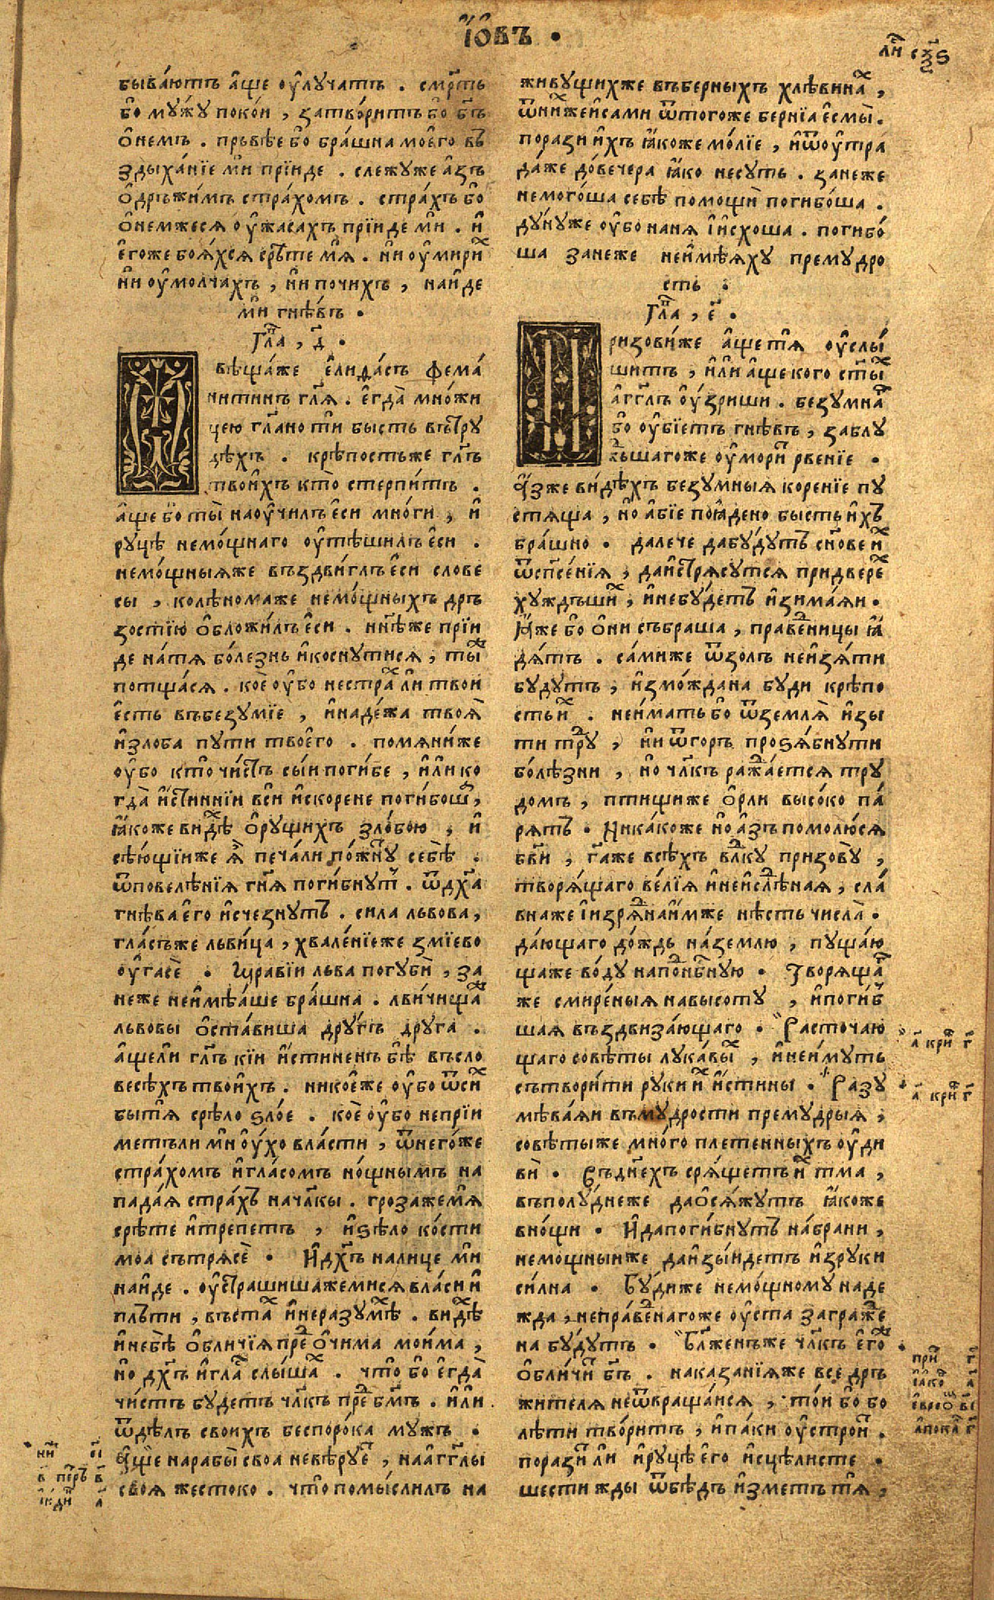 І҆ѡ҆въ .
быва́ютъ а҆ще оу҆лучатъ . сме҃рть
бо мꙋ́жꙋ поко́и , затвори́тъ бо бг҃ъ
ѻ҆немъ . прьвѣе бо бра́шна моего̀ въ
здыха́нїе мѝ прїи́де . слеꙁꙋже а҆зъ
ѻ҆дрьжи́мъ стра́хомъ . стра́хъ бо
ѻ҆немжеся оу҆жаса́хъ прїи́де ми . и҆
е҆гоже боя́хся срѣ́те мя . ни оу҆мири́х
ни оу҆молча́хъ , ни почи́хъ , наи́де
ми гнѣ́въ .
Гла҃ , д҃ .
вѣща́же е҆лида́съ фема́
нитинъ гл҃я . е҆гда̀ мно́жи
цею гл҃ано ти бысть въ трꙋ
дѣхъ . крѣпость же гл҃ъ
твои́хъ кто̀ стерпи́тъ .
а҆ще бо ты̀ наоу҆чилъ е҆си мно́ги , и҆
рꙋцѣ немо́щнаго оу҆тѣшилъ е҆си .
немо́щныяже въздви́глъ е҆си слове
сы , колѣномаже немо́щныхъ дрь
зостїю ѻ҆бложи́лъ е҆си . нн҃ѣже прїи́
де на́тя бо́лезнь и҆коснꙋтися , ты́ж
потща́ся . коѐ оу҆бо нестра́х ли твои
е҆сть въбезꙋ́мїе , и҆наде́жа твоя̀
и҆злоба пꙋти твоего . помяни́же
оу҆бо кто̀ чи́стъ сы́и поги́бе , и҆лѝ ко
гда̀ и҆́стиннїи всѝ и҆скорене поги́боша ,
ꙗ҆коже ви́дѣх ѻ҆рꙋщихъ зло́бою , и҆
сѣ́ющїиже я҆̀ печа́ли по́жнꙋт себѣ .
ѿповелѣ́нїя гн҃я поги́бнꙋт . ѿдх҃а
гнѣ́ва е҆го и҆счезнꙋтъ . сила льво́ва ,
гла́съже льви́ца , хвале́нїеже змїево
оу҆гасѐ . Мравїи льва погꙋбѝ , за
неже неи҆мѣ́аше бра́шна . льви́чища
львовы ѻ҆ста́виша дрꙋ́гъ дрꙋга .
а҆щели гл҃ъ кїи и҆́стиненъ бѣ̀ въсло
весѣхъ твои́хъ . никое́же оу҆бо ѿси́х
бы́ тя срѣло ѕло́е . коѐ оу҆бо непрїи
метъли мѝ оу҆́хо вла́сти , ѿнего́же
стра́хомъ и҆гла́сомъ но́щнымъ на
па́дая стра́хъ начл҃кы . гроза́же мя
срѣ́те и҆трепетъ , и҆ѕѣло ко́сти
моа̀ сътрясѐ . И҆дх҃ъ налице мѝ
наи́де . оу҆страши́шажемися вла́си и҆
плъ́ти , въста́х и҆неразꙋмѣ́х . ви́дѣх
и҆небѣ ѻ҆бли́чїя пред ѻ҆чи́ма мои́ма ,
но дх҃ъ и҆гла́с слы́шах . что̀ бо е҆гда̀
чи́стъ бꙋдетъ чл҃къ пред бг҃мъ . и҆лѝ
ѿдѣлъ свои́хъ беспоро́ка мꙋжъ .
а҆́ще нарабы̀ своа невѣрꙋет , нааггл҃ы
своя же́стоко . что̀ помы́слилъ на
живꙋщихже въберныхъ хлѣвина́х ,
ѿни́хже и҆сами ѿтогоже берні́а е҆смы .
порази и҆́хъ ꙗ҆коже мо́лїе , и҆ѿоу҆тра
да́же до́вечера ꙗ҆́ко несꙋ́ть . зане́же
немого́ша себѣ помощѝ поги́боша .
дꙋ́нꙋже оу҆бо наня и҆и҆схоша . погибо́
ша зане́же неи҆мѣ́яхꙋ премꙋдро
сть .
Гла҃ , е҃ .
ризови́же а҆ще тя̀ оу҆слы́
шитъ , и҆лѝ а҆ще кого ст҃ых
а҆гг҃лъ оу҆́зриши . безꙋмнаг
бо оу҆бїетъ гнѣвъ , заблꙋ
ждьшагоже оу҆мори́т рвенїе .
а҆́зже ви́дѣхъ безꙋ́мныя коре́нїе пꙋ
стяща , но а҆бїе поꙗ҆дено бысть и҆́хъ
бра́шно . дале́че дабꙋ́дꙋтъ сн҃ове и҆́х
ѿсп҃се́нїя , даи҆стря́сꙋтся придвере́х
хꙋ́ждьши́х , и҆небꙋ́детъ и҆зима́яи .
И҆́же бо ѻ҆ни събра́ша , праве́дницы ꙗ҆
дя́тъ . са́миже ѿзолъ неи҆зяти
бꙋдꙋтъ , и҆змо́ждана бꙋди крѣпо
сть и҆́х . неи҆мать бо ѿземля̀ и҆зы
ти трꙋд , ни ѿго́ръ проѕя́бнꙋти
бо́лѣзни , но чл҃къ ража́ется трꙋ
домъ , птищиже ѻ҆рли высо́ко па́
рятъ . Ника́коже но а҆́зъ помолю́ся
бг҃ви , гд҃аже всѣ́хъ влд҃кꙋ призовꙋ̀ ,
творя́щаго ве́лїя и҆неи҆слѣ́дная , сла́
внаже и҆изря́днаи҆мже нѣ́сть числа̀ .
даю́щаго до́ждь на́землю , пꙋща́ю
щаже во́дꙋ напо́днебнꙋю . Творя́щаг
же смире́ныя навысотꙋ , и҆поги́б
шая въздвиза́ющаго . Расточаю
щаго совѣ́ты лꙋка́вых , и҆неи҆мꙋть
сътвори́ти рꙋки и҆́х и҆́стины . Разꙋ
мѣва́яи въмꙋ́дрости премꙋ́дрыя ,
совѣ́тыже мно́го плете́нныхъ оу҆ди
вѝ . Въдн҃ехъ сря́щетъ и҆́х тма ,
въполꙋ́днеже даѻ҆ся́жꙋтъ ꙗ҆коже
вно́щи . И҆дапоги́бнꙋтъ на́брани ,
немо́щныиже даи҆зы́идетъ и҆зрꙋки
си́лна . Бꙋ́диже немо́щномꙋ наде
жда , непра́веднагоже оу҆ста загражде
на бꙋ́дꙋтъ . Бл҃же́нъже чл҃къ е҆гож
ѻ҆бличи́ бг҃ъ . наказа́нїяже все дръ
жителя неѿвраща́ися , то́и бо бо
лѣ́ти твори́тъ , и҆па́ки оу҆стро́ит .
поразит ли и҆рꙋцѣ е҆го̀ и҆сцѣли́сте .
шести жды ѿбѣ́дъ и҆змет тя̀ ,
а҃ кори́н г҃
а҃ кори́н г҃